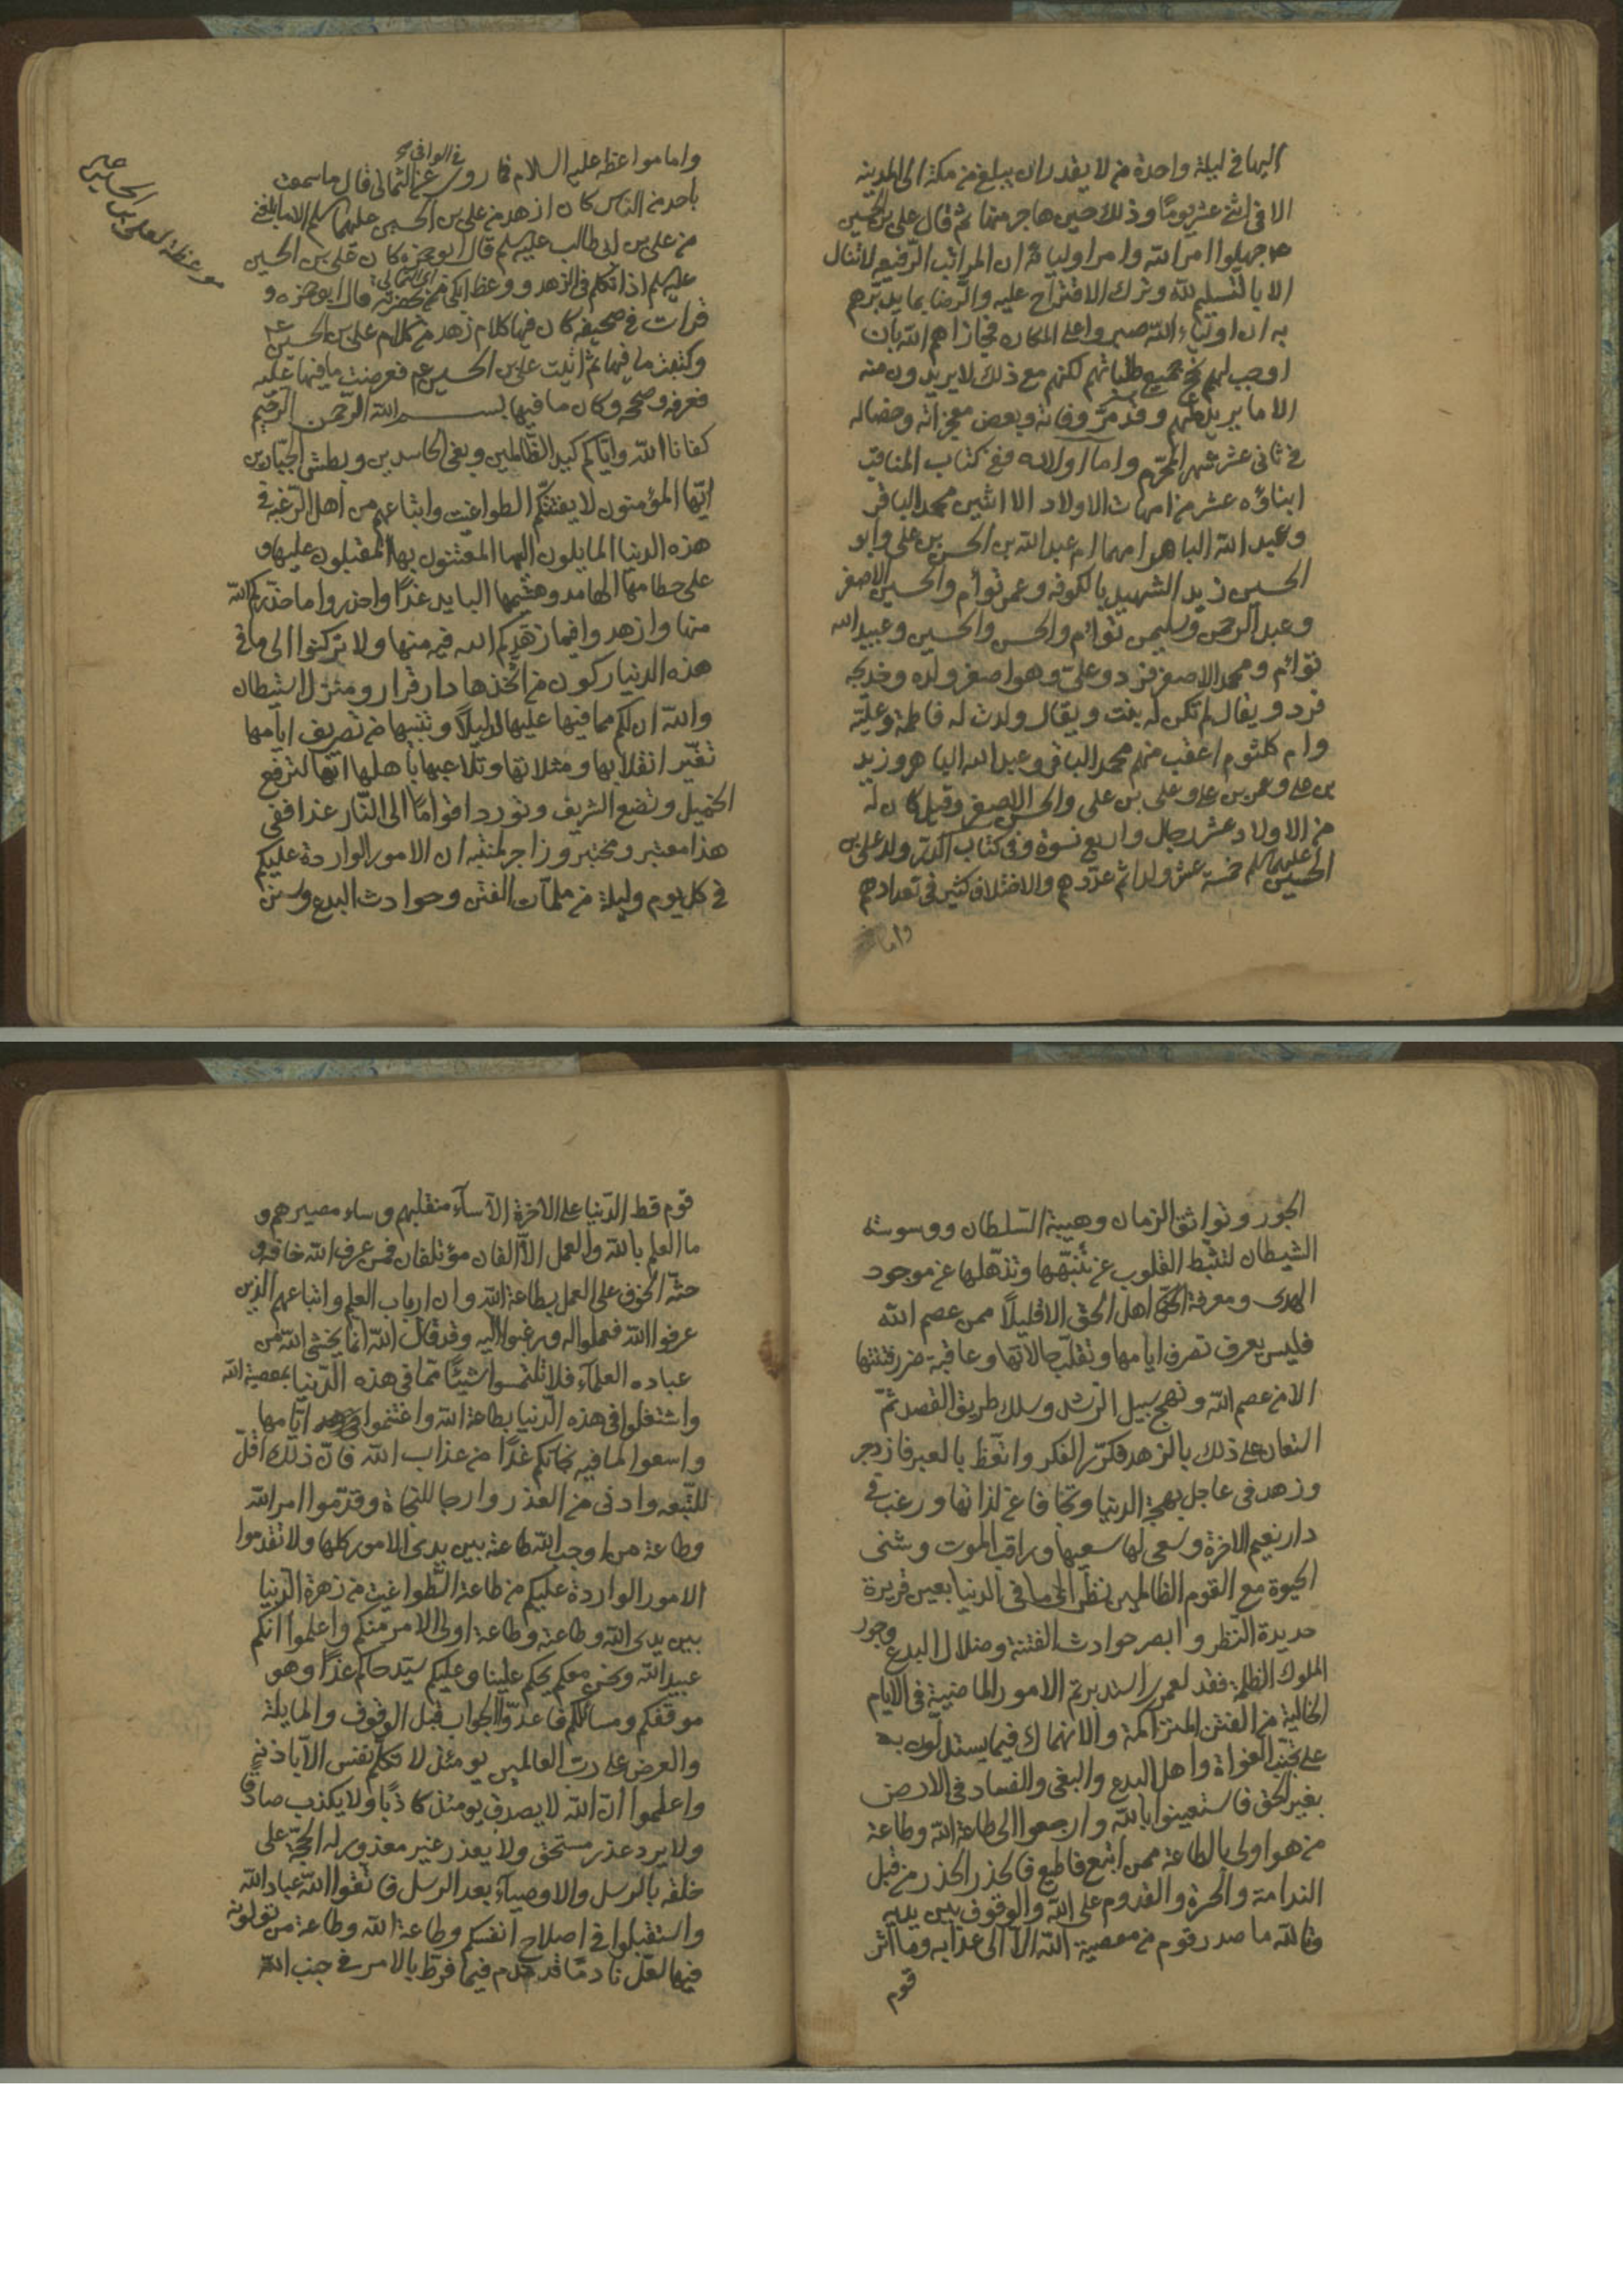 اليها في ليلة واحدة من لا يقدر ان يبلغ من مكة الى المدينة
الا في اثني عشر يوما وذلك حين هاجر منها ثم قال علي بن الحسين
جهلوا امر الله وامر اوليائه ان المراتب الرفيعة لا تنال
الا بالتسليم لله وترك الاقتراح عليه والرضا بما يدبرهم
به ان اولياء الله صبروا على المكاره فجازاهم الله بان
اوجب لهم نجح جميع طلباتهم لكنهم مع ذلك لا يريدون منه
الا ما يريد لهم وقد مر وفاته وبعض معجزاته وخصاله
في ثاني عشر شهر المحرم واما اولاده ففي كتاب المناقب
ابناؤه عشر من امهات الاولاد الا اثنين محمد الباقر
وعبد الله الباهر امهما ام عبد الله بن الحسن بن علي وابو
الحسين زيد الشهيد بالكوفة وعمر توأم والحسين الاصغر
وعبد الرحمن وسليمن توأم والحسن والحسين وعبيد الله
توأم ومحمد الاصغر فرد وعلي وهو اصغر ولده وخديجة
فرد ويقال لم تكن له بنت ويقال ولدت له فاطمة وعلية
وام كلثوم اعقب منهم محمد الباقر وعبد الله الباهر وزيد
بن علي وعمر بن علي وعلي بن علي والحسين الاصغر وقيل كان له
من الاولاد عشر رجال واربع نسوة وفي كتاب الدر ولد علي بن
الحسين عليهما السلم خمسة عشر ولدا ثم عددهم والاختلاف كثير في تعدادهم
واما
واما مواعظه عليه السلام فما روى في الوافي عن الثمالي قال ما سمعت
باحد من الناس كان ازهد من علي بن الحسين عليهما السلم الا ما بلغني
من علي بن ابي طالب عليه السلم قال ابو حمزة كان علي بن الحسين
عليه السلم اذا تكلم في الزهد ووعظ ابكى من بحضرته قال ابو حمزة و
قرات في صحيفة كان فيها كلام زهد من كلام علي بن الحسين ع
وكتبت ما فيها ثم اتيت علي بن الحسين ع فعرضت ما فيها عليه
فعرفه وصححه وكان ما فيها بسم الله الرحمن الرحيم
كفانا الله واياكم كيد الظالمين وبغي الحاسدين وبطش الجبارين
ايها المؤمنون لا يفتننكم الطواغيت واتباعهم من اهل الرغبة في
هذه الدنيا المايلون اليها المفتتنون بها المقبلون عليها و
على حطامها الهامد وهشيمها البايد غدا واحذروا ما حذركم الله
منها وازهدوا فيما زهدكم الله فيه منها ولا تركنوا الى ما في
هذه الدنيا ركون من اتخذها دار قرار ومنزل استيطان
والله ان لكم مما فيها عليها لدليلا وتنبيها من تصريف ايامها
تغير انقلابها ومثلاتها وتلاعبها باهلها انها لترفع
الخميل وتضع الشريف وتورد اقواما الى النار غدا ففي
هذا معتبر ومختبر وزاجر لمنتبه ان الامور الواردة عليكم
في كل يوم وليلة من ملمات الفتن وحوادث البدع وسنن
موعظة لعلي بن الحسين
الجور وبوائق الزمان وهيبة السلطان ووسوسة
الشيطان لتثبط القلوب عن تنبهها وتذهلها عن موجود
الهدى ومعرفة اهل الحق الا قليلا ممن عصم الله
فليس يعرف تصرف ايامها وتقلب حالاتها وعاقبة ضرر فتنتها
الا من عصم الله ونهج سبيل الرشد وسلك طريق القصد ثم
استعان على ذلك بالزهد فكرر الفكر واتعظ بالعبر فازدجر
وزهد في عاجل بهجة الدنيا وتجافا عن لذاتها ورغب في
دار نعيم الاخرة وسعى لها سعيها وراقب الموت وشنى
الحيوة مع القوم الظالمين نظر الى ما في الدنيا بعين قريرة
حديدة النظر وابصر حوادث الفتنة وضلال البدع وجور
الملوك الظلمة فقد لعمري استدبرتم الامور الماضية في الايام
الخالية من الفتن المتراكمة والانهماك فيما يستدلون به
على تجنب الغواة واهل البدع والبغي والفساد في الارض
بغير الحق فاستعينوا بالله وارجعوا الى طاعة الله وطاعة
من هو اولى بالطاعة ممن اتبع فاطيع فالحذر الحذر من قبل
الندامة والحسرة والقدوم على الله والوقوف بين يديه
وتالله ما صدر قوم من معصية الله الا الى عذابه وما اثر
قوم
قوم قط الدنيا على الاخرة الا ساء منقلبهم وساء مصيرهم و
ما العلم بالله والعمل الا الفان مؤتلفان فمن عرف الله خافه و
حثه الخوف على العمل بطاعة الله وان ارباب العلم واتباعهم الذين
عرفوا الله فعملوا له ورغبوا اليه وقد قال الله انما يخشى الله من
عباده العلماء فلا تلتمسوا شيئا مما في هذه الدنيا بمعصية الله
واشتغلوا في هذه الدنيا بطاعة الله واغتنموا ايامها
واسعوا لما فيه نجاتكم غدا من عذاب الله فان ذلك اقل
للتبعة وادنى من العذر وارجا للنجاة وقدموا امر الله
وطاعة من اوجب الله طاعته بين يدي الامور كلها ولا تقدموا
الامور الواردة عليكم من طاعة الطواغيت من زهرة الدنيا
بين يدي الله وطاعته وطاعة اولى الامر منكم واعلموا انكم
عبيد الله ونحن معكم يحكم علينا وعليكم سيد حاكم غدا وهو
موقفكم ومسائلكم فاعدوا الجواب قبل الوقوف والمسايلة
والعرض على رب العالمين يومئذ لا تكلم نفس الا باذنه
واعلموا ان الله لا يصدق يومئذ كاذبا ولا يكذب صادقا
ولا يرد عذر مستحق ولا يعذر غير معذور له الحجة على
خلقه بالرسل والاوصياء بعد الرسل فاتقوا الله عباد الله
واستقبلوا في اصلاح انفسكم وطاعة الله وطاعة من تولونه
فيها لعل نادما قد ندم فيما فرط بالامر في جنب الله